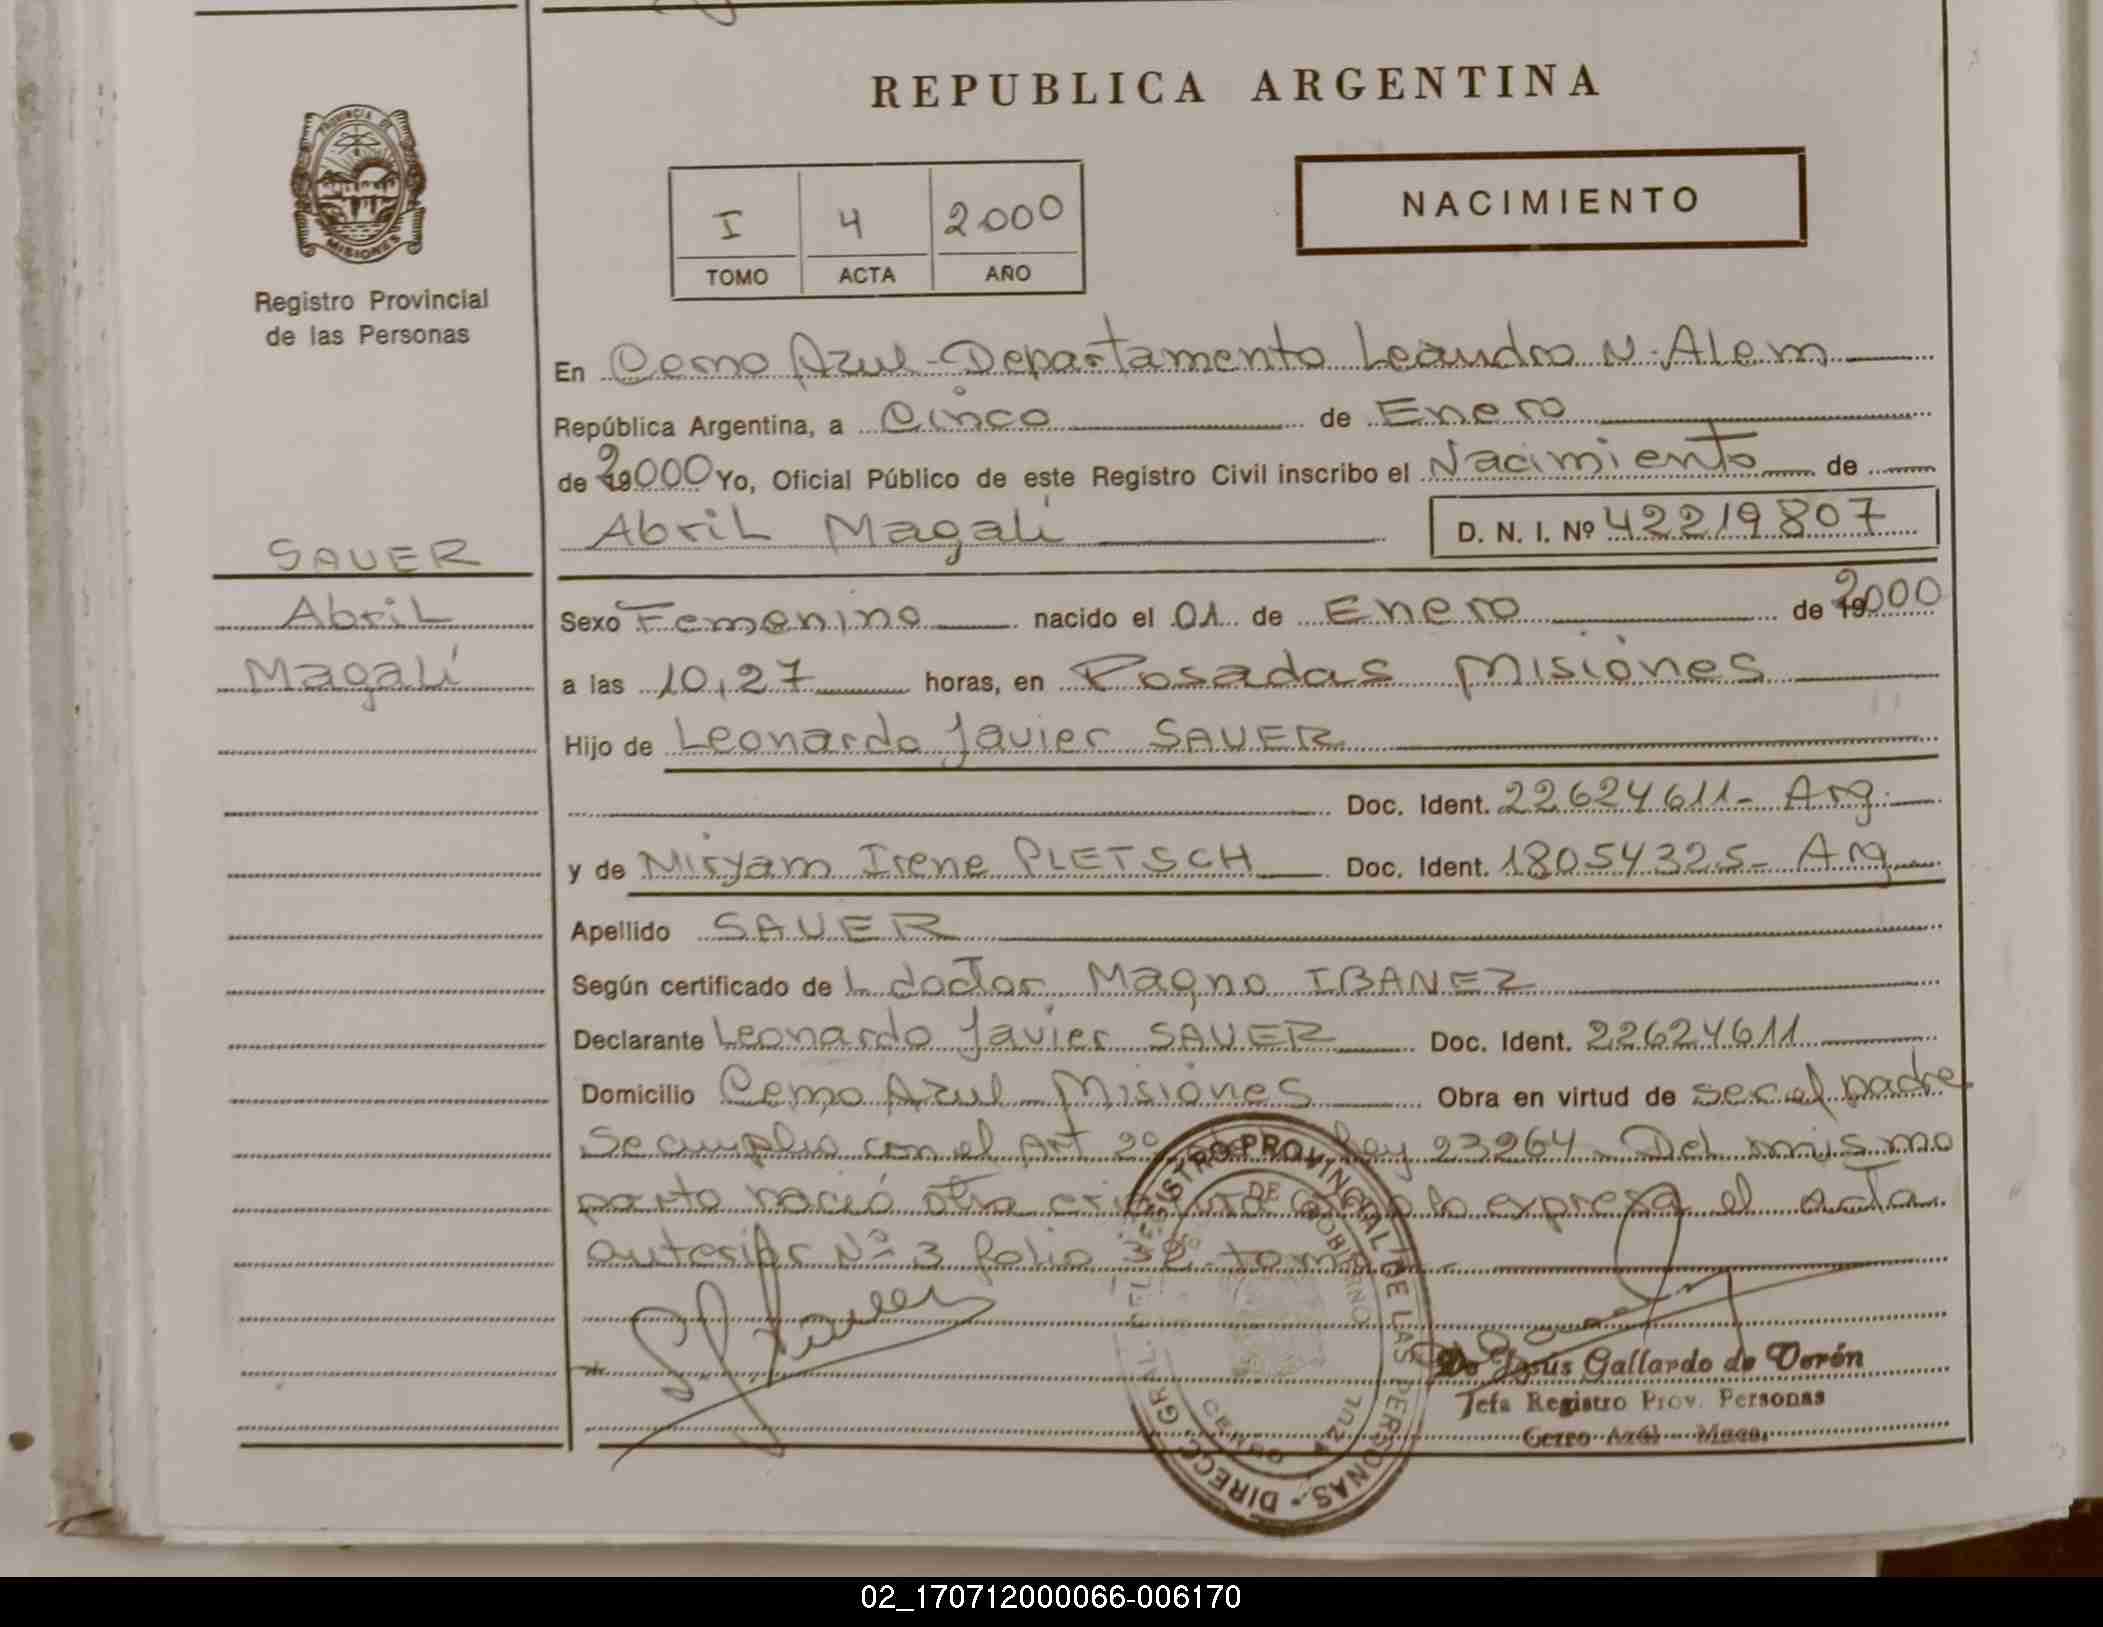 REPUBLICA ARGENTINA
PROVINCIA DE
MISIONES
Registro Provincial
de las Personas
I 4 2000
TOMO ACTA AÑO
NACIMIENTO
En Cerro Azul - Departamento Leandro N. Alem
República Argentina, a Cinco de Enero
de 2000 Yo, Oficial Público de este Registro Civil inscribo el Nacimiento de
Abril Magalí D. N. I. Nº 42219807
SAUER
Abril
Magalí
Sexo Femenino nacido el 01 de Enero de 2000
a las 10,27 horas, en Posadas Misiones
Hijo de Leonardo Javier SAUER
Doc. Ident. 22624611 - Arg.
y de Miryam Irene PLETSCH Doc. Ident. 18054325 - Arg.
Apellido SAUER
Según certificado de L doctor Magno IBANEZ
Declarante Leonardo Javier SAUER Doc. Ident. 22624611
Domicilio Cerro Azul Misiones Obra en virtud de ser el padre
Se cumplio con el Art 2º Ley 23264 - Del mismo
parto nació otra criatura como lo expresa el acta
anterior Nº 3 folio tomo
DIRECC. GRAL. DEL REGISTRO PROVINCIAL DE LAS PERSONAS
DE GOBIERNO
CERRO AZUL
De Jesús Gallardo de Verón
Jefa Registro Prov. Personas
Cerro Azul - Mnes.
02_170712000066-006170